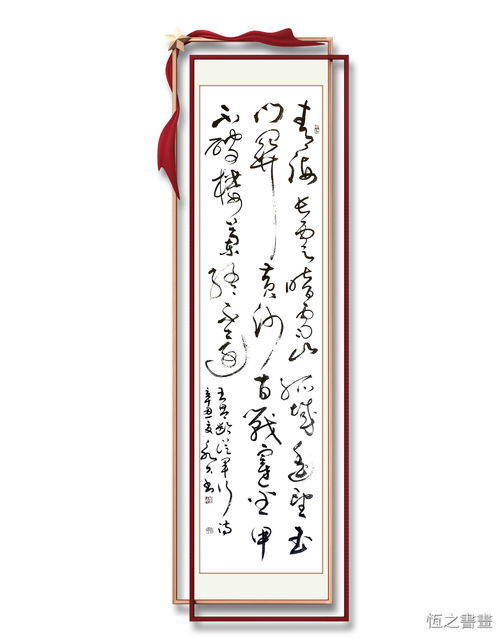 青海長雲暗雪山孤城遙望玉
門關黃沙百戰穿金甲
不破樓蘭終不還
王昌齡從軍行詩
辛丑夏書
恆之書畫